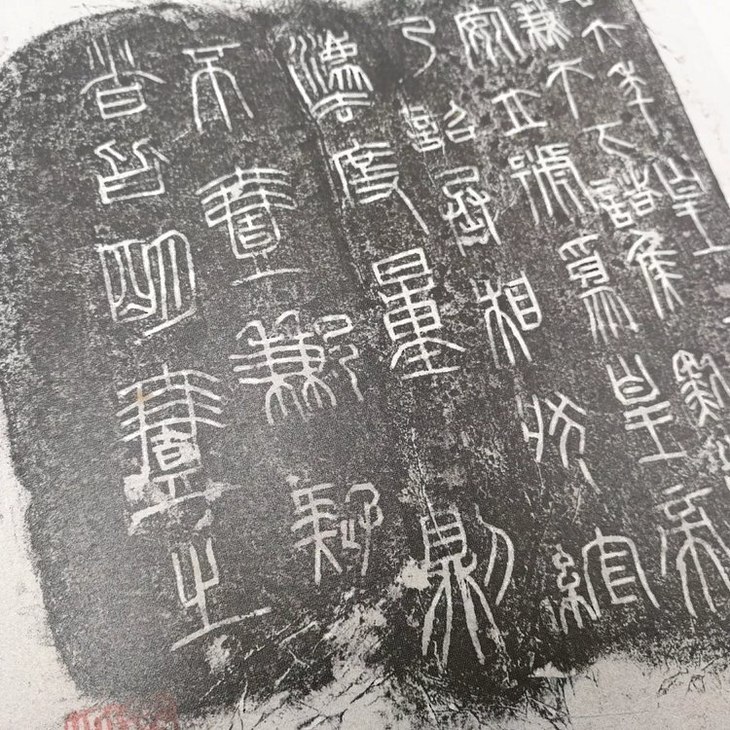 六年皇
兼天下諸侯黔
安立號為皇帝
乃詔丞相狀綰
灋度量則
不壹歉疑
者皆明壹之